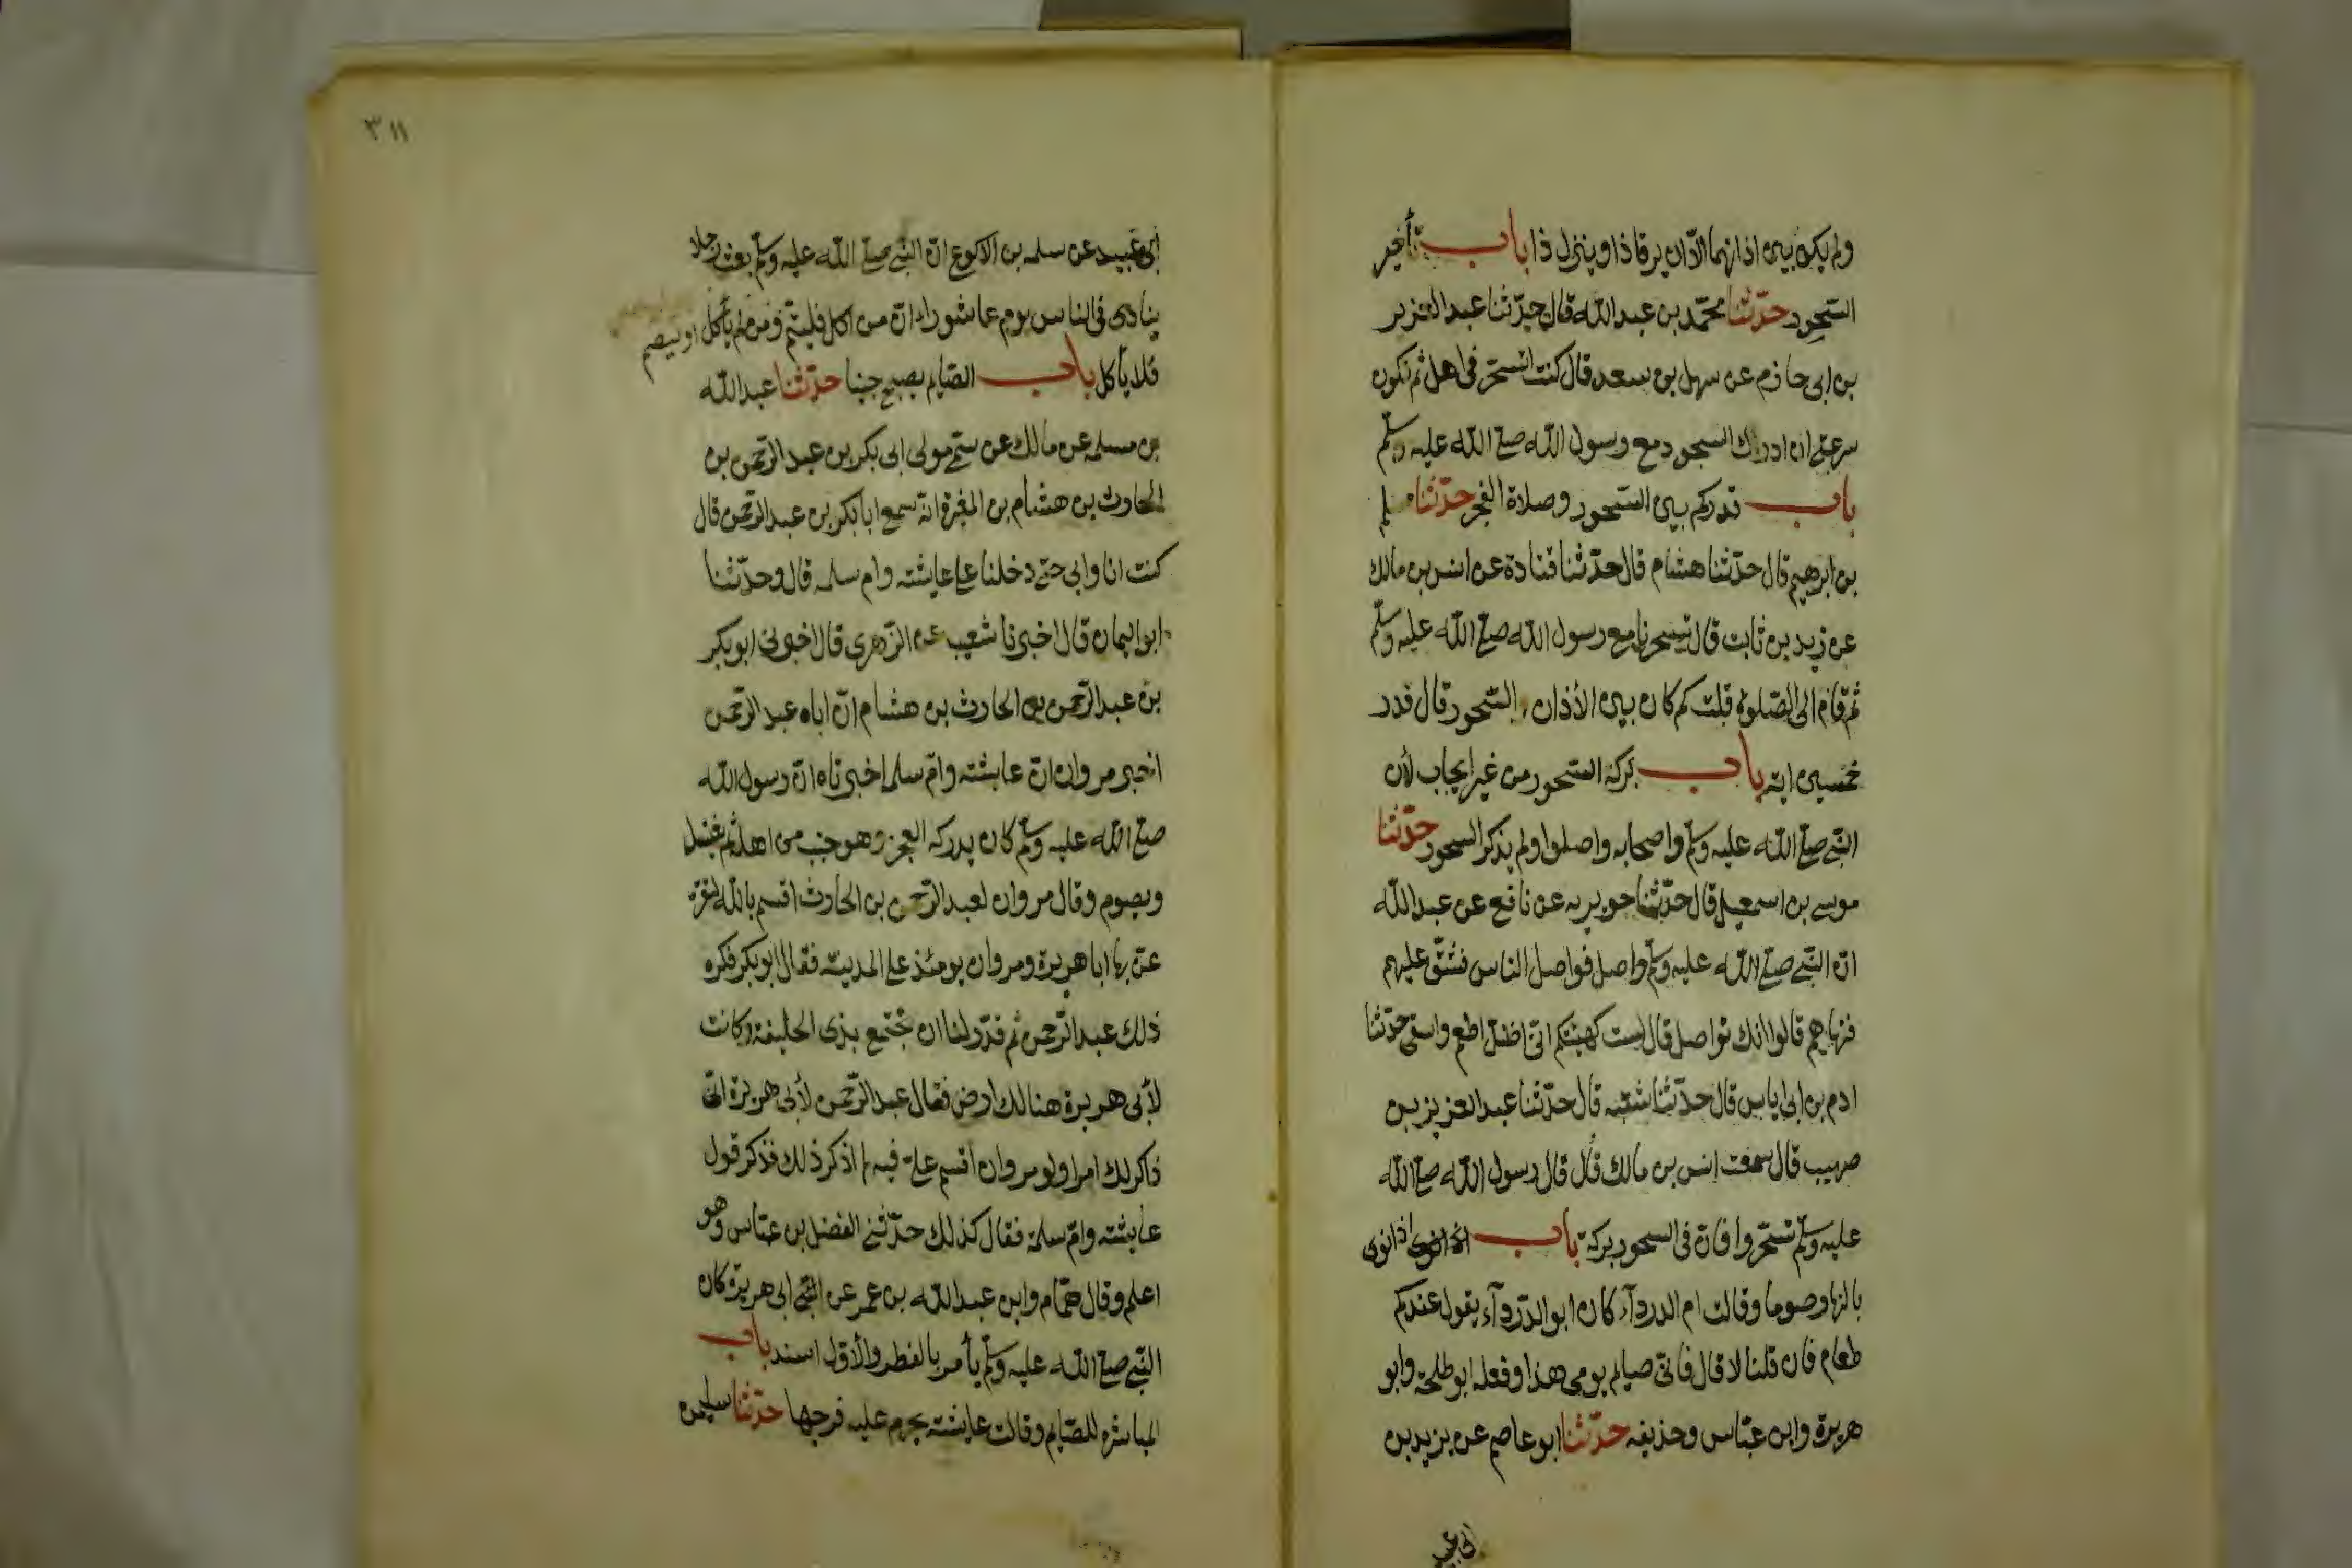 ولم يكن بين اذانهما الا ان يرقا ذا وينزل ذا باب تأخير
السحور حدّثنا محمّد بن عبد الله قال حدّثنا عبد العزيز
بن ابى حازم عن سهل بن سعد قال كنت اتسحّر فى اهلى ثم تكون
سرعتى ان ادرك السجود مع رسول الله صلى الله عليه وسلّم
باب قدركم بين السّحور وصلاة الفجر حدّثنا مسلم
بن ابرهيم قال حدّثنا هشام قال حدّثنا قتادة عن انس بن مالك
عن زيد بن ثابت قال تسحرنا مع رسول الله صلى الله عليه وسلّم
ثم قام الى الصّلوة قلت كم كان بين الأذان والسّحور قال قدر
خمسين اية باب بركة السّحور من غير ايجاب لأن
النّبى صلى الله عليه وسلّم واصحابه واصلوا ولم يذكر السحور حدّثنا
موسى بن اسمعيل قال حدّثنا جويريه عن نافع عن عبد الله
انّ النّبى صلى الله عليه وسلّم واصل فواصل الناس فشقّ عليهم
فنهاهم قالوا انك تواصل قال لست كهيئتكم انّى اظلّ اطعم واسقى حدّثنا
ادم بن ابى اياس قال حدّثنا شعبه قال حدّثنا عبد العزيز بن
صهيب قال سمعت انس بن مالك قال قال رسول الله صلى الله
عليه وسلّم تسحّروا فانّ فى السحور بركة باب اذا نوى
بالنهار صوما وقالت ام الدردآء كان ابو الدّردآء يقول عندكم
طعام فان قلنا لا قال فانّى صايم يومى هذا وفعله ابو طلحة وابو
هريرة وابن عبّاس وحذيفه حدّثنا ابو عاصم عن يزيد بن
ابى عبيد
٣١١
ابى عبيد عن سلمه بن الاكوع انّ النّبى صلى الله عليه وسلّم بعث رجلا
ينادى فى الناس يوم عاشوراء انّ من اكل فليتمّ ومن لم يأكل او ليصم
فلا يأكل باب الصّايم يصبح جنبا حدّثنا عبد الله
بن مسلمه عن مالك عن سمّى مولى ابى بكر بن عبد الرّحمن بن
الحارث بن هشام بن المغيرة انّه سمع ابا بكر بن عبد الرّحمن قال
كنت انا وابى حتى دخلنا على عايشته وام سلمه قال وحدّثنا
ابو اليمان قال اخبرنا شعيب عن الزّهرى قال اخبرنى ابو بكر
بن عبد الرّحمن بن الحارث بن هشام انّ اباه عبد الرّحمن
اخبر مروان انّ عايشته وامّ سلمه اخبرتاه انّ رسول الله
صلى الله عليه وسلّم كان يدركه الفجر وهو جنب من اهله ثم يغتسل
ويصوم وقال مروان لعبد الرّحمن بن الحارث اقسم بالله
بها ابا هريرة ومروان يومئذ على المدينة فقال ابو بكر فكره
ذلك عبد الرّحمن ثم قدّر لنا ان نجتمع بذى الحليفة وكانت
لأبى هريرة هنالك ارض فقال عبد الرّحمن لأبى هريرة انّى
ذاكر لك امرا ولو مروان اقسم علىّ فيه لم اذكر ذلك فذكر قول
عايشته وامّ سلمة فقال كذلك حدّثنى الفضل بن عبّاس وهو
اعلم وقال همّام وابن عبد الله بن عمر عن ابى هريرة كان
النّبى صلى الله عليه وسلّم يأمر بالفطر والأوّل اسند باب
المباشره للصّايم وقالت عايشته يحرم عليه فرجها حدّثنا سليمن